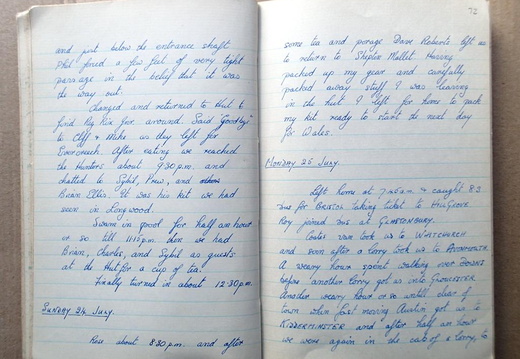 and just below the entrance shaft.
Phil forced a few feet of very tight
passage in the belief that it was
the way out.
Changed and returned to Hut to
find Roy Rix for around. Said "Goodbye"
to Cliff & Mike as they left for
Evercreech. After eating we reached
the Hunters about 9.30 p.m. and
chatted to Sybil, Prew, and
Brian Ellis. It was his kit we had
seen in Longwood.
Swam in pool for half an hour
or so till 11.15 p.m. then we had
Brian, Charles, and Sybil as guests
at the Hut for a cup of tea.
Finally turned in about 12.30 p.m.
SUNDAY 24 JULY.
Rose about 8.30 p.m. and after
72
some tea and porage Dave Roberts left me
to return to Shepton Mallet. Having
packed up my gear and carefully
packed away stuff I was leaving
in the Hut I left for home to pack
my kit ready to start the next day
for Wales.
MONDAY 25 JULY.
Left home at 7.45 a.m. & caught 8.3
bus for BRISTOL taking ticket to HILLGROVE
Roy joined bus at GLASTONBURY.
Coates van took us to WHITCHURCH
and soon after a lorry took us to AVONMOUTH
A weary hour spent walking over DOWNS
before another lorry got us into GLOUCESTER
Another weary hour or so until clear of
town when fast moving Austin got us to
KIDDERMINSTER and after half an hour
we were again in the cab of a lorry, to